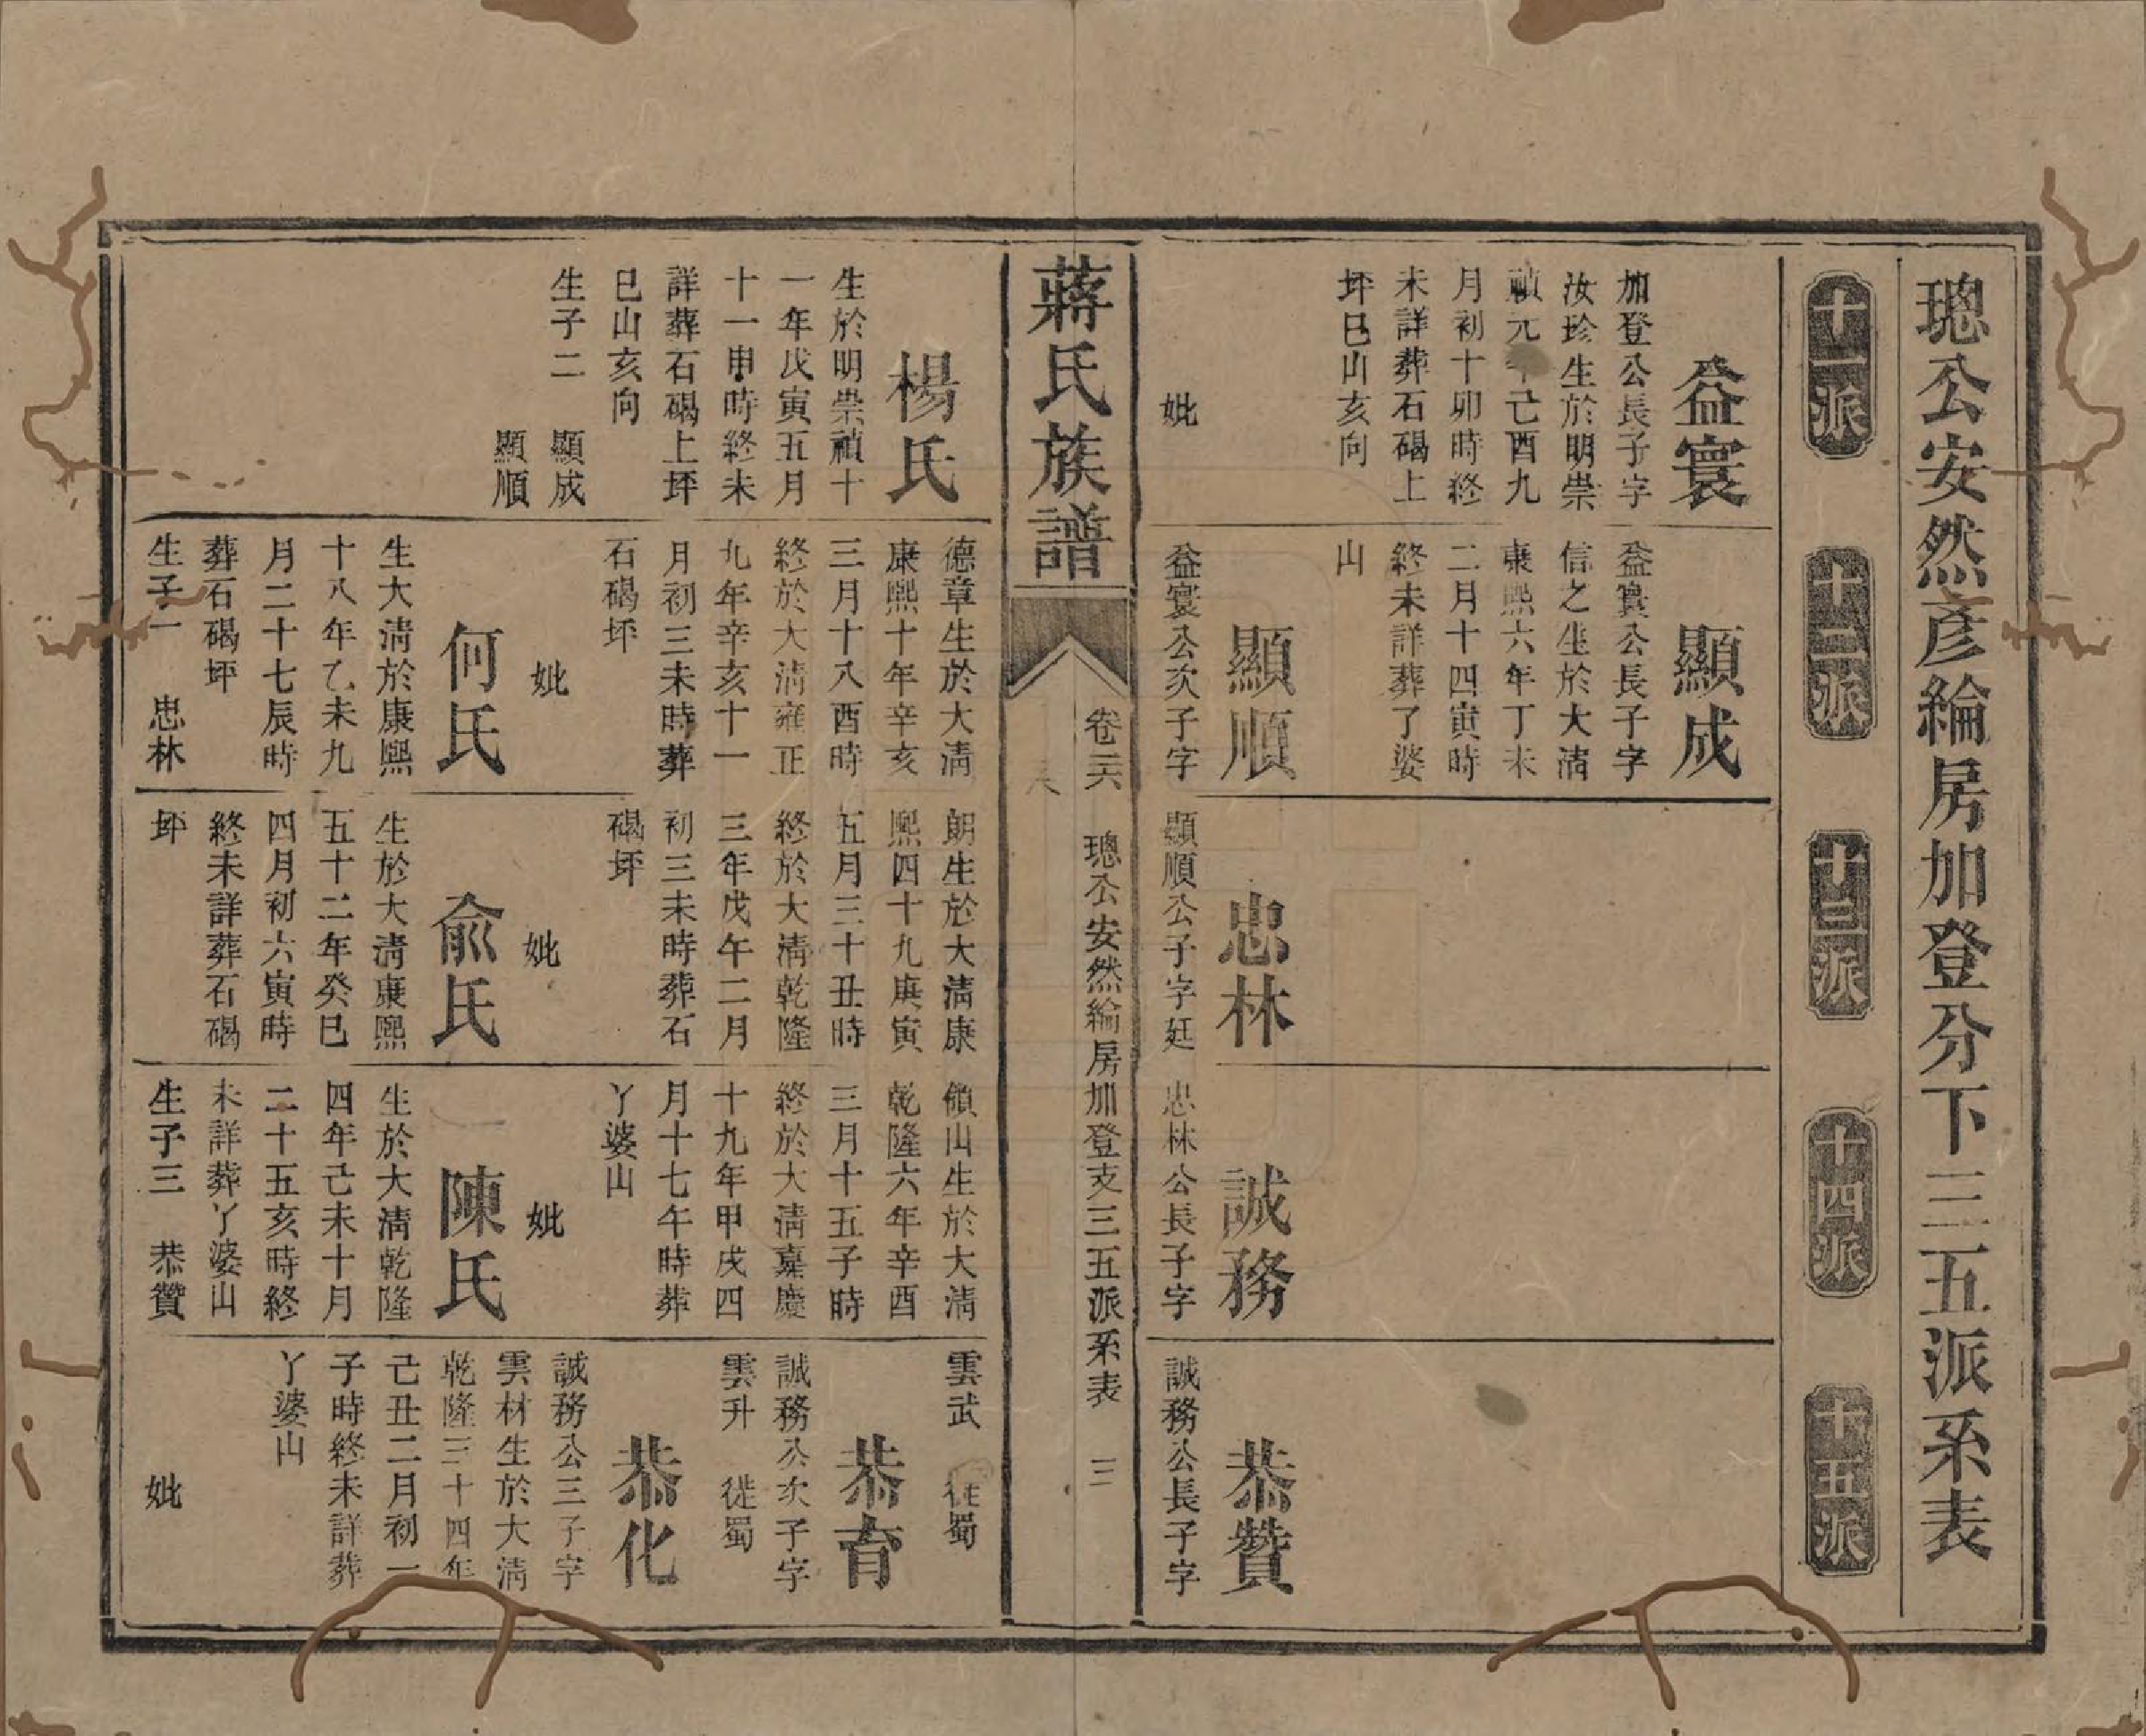 璁公安然彥綸房加登分下三五派系表
十一派
十二派
十三派
十四派
十五派
益寰
加登公長子字
汝珍生於明崇
禎元年己酉九
月初十卯時終
未詳葬石碣上
坪巳山亥向
妣
顯成
益寰公長子字
信之生於大清
康熙六年丁未
二月十四寅時
終未詳葬了婆
山
顯順
益寰公次子字
忠林
顯順公子字廷
誠務
忠林公長子字
恭贊
誠務公長子字
蔣氏族譜
卷二六
璁公安然綸房加登支三五派系表
三
楊氏
生於明崇禎十
一年戊寅五月
十一申時終未
詳葬石碣上坪
巳山亥向
生子二 顯成
顯順
德章生於大清
康熙十年辛亥
三月十八酉時
終於大清雍正
九年辛亥十一
月初三未時葬
石碣坪
妣
何氏
生大清於康熙
十八年乙未九
月二十七辰時
葬石碣坪
生子一 忠林
朗生於大清康
熙四十九庚寅
五月三十丑時
終於大清乾隆
三年戊午二月
初三未時葬石
碣坪
妣
俞氏
生於大清康熙
五十二年癸巳
四月初六寅時
終未詳葬石碣
坪
嶺山生於大清
乾隆六年辛酉
三月十五子時
終於大清嘉慶
十九年甲戌四
月十七午時葬
丫婆山
妣
陳氏
生於大清乾隆
四年己未十月
二十五亥時終
未詳葬丫婆山
生子三 恭贊
雲武 徙蜀
恭育
誠務公次子字
雲升 徙蜀
恭化
誠務公三子字
雲材生於大清
乾隆三十四年
己丑二月初一
子時終未詳葬
丫婆山
妣